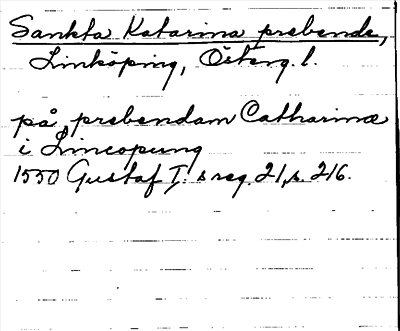 Sankta Katarina prebende,
Linköping, Österg. l.
på prebendam Catharinæ
i Lincopung
1550 Gustaf I:s reg. 21, s. 216.